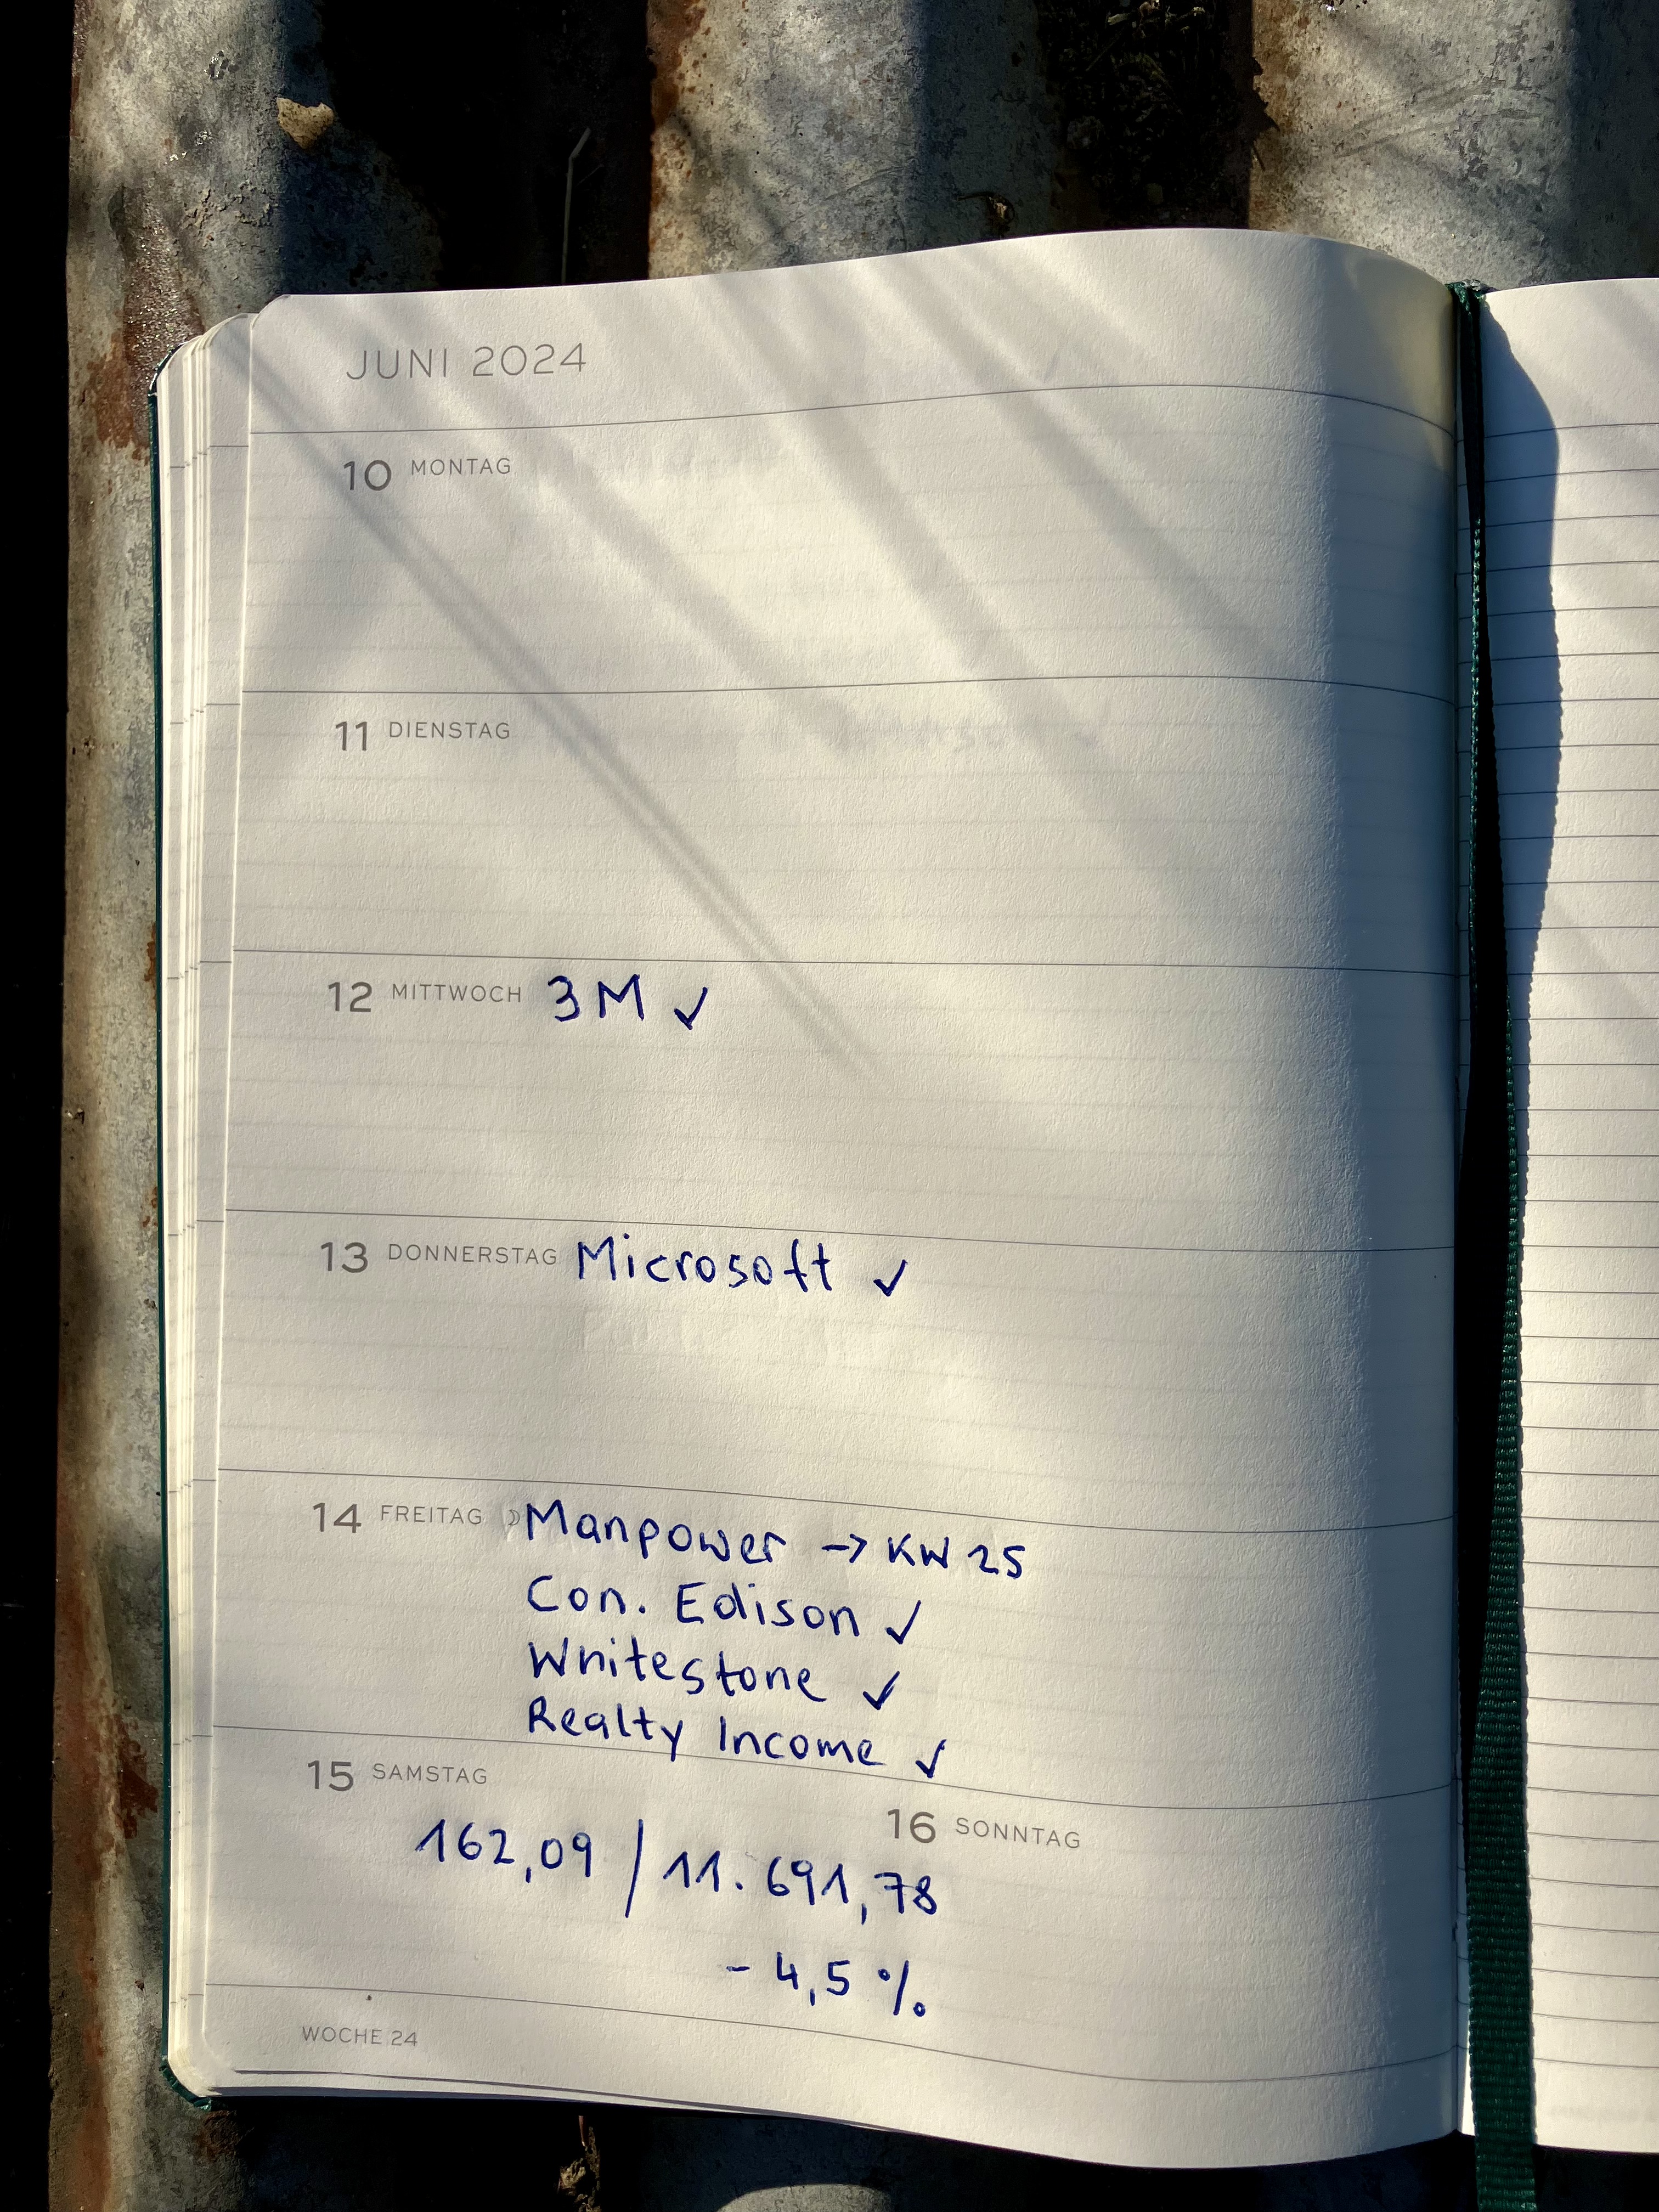 JUNI 2024
10 MONTAG
11 DIENSTAG
12 MITTWOCH 3M ✓
13 DONNERSTAG Microsoft ✓
14 FREITAG ☽ Manpower → KW 25
Con. Edison ✓
Whitestone ✓
Realty Income ✓
15 SAMSTAG
16 SONNTAG
162,09 / 11.691,78
- 4,5 %
WOCHE 24